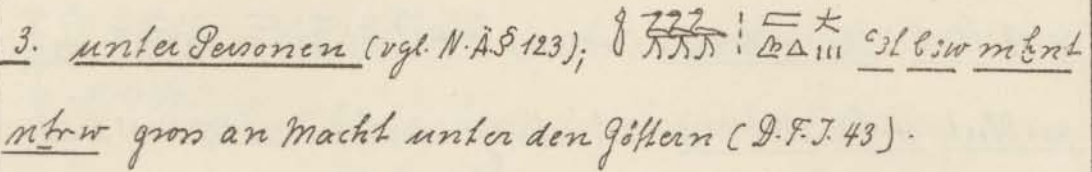 3. unter Personen (vgl. N.Ä.§ 123); ꜥꜣt bꜣw m ẖnt
nṯrw gross an Macht unter den Göttern (D.F.J. 43).